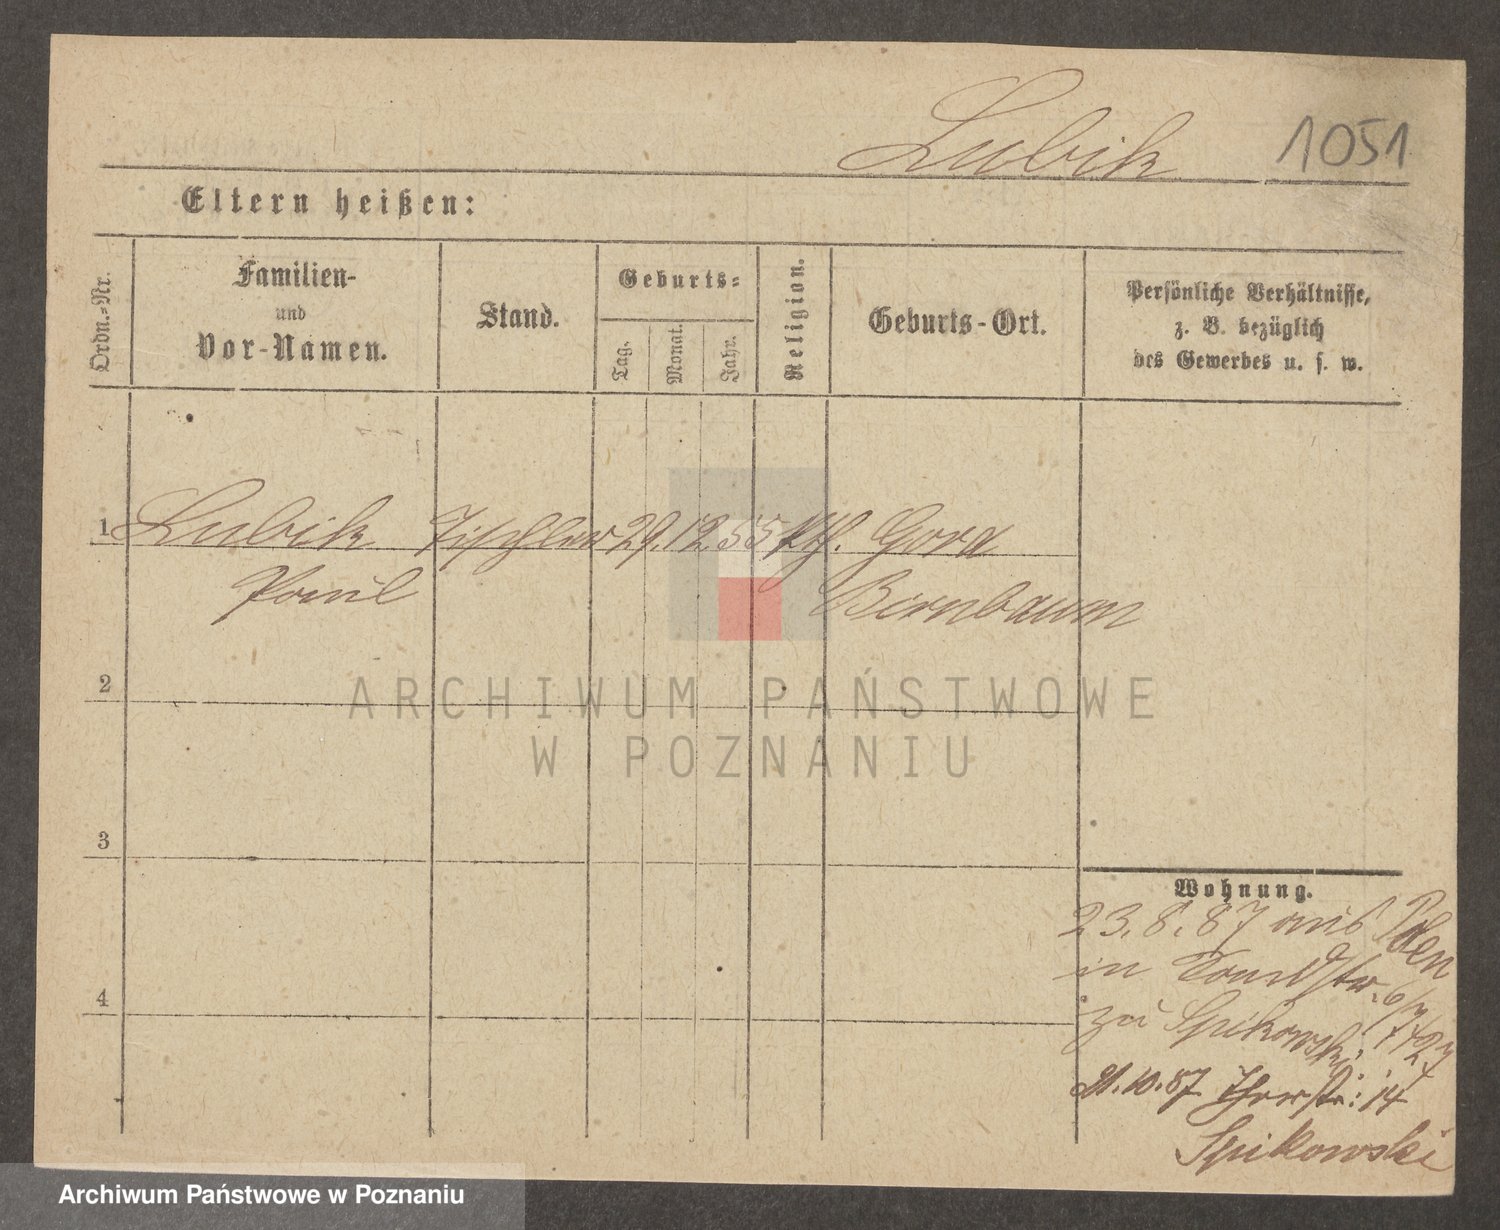 Lubik 1051
Eltern heißen:
Ordn.-Nr.
Familien-
und
Vor-Namen.
Stand.
Geburts-
Tag.
Monat.
Jahr.
Religion.
Geburts-Ort.
Persönliche Verhältnisse,
z. B. bezüglich
des Gewerbes u. s. w.
1 Lubik Tischler 29. 12 55 kth. Gora
Paul Birnbaum
2
3
4
Wohnung.
23.8.87 aus
in
zu Spikowski
10.87 14
Spikowski
ARCHIWUM PAŃSTWOWE
W POZNANIU
Archiwum Państwowe w Poznaniu